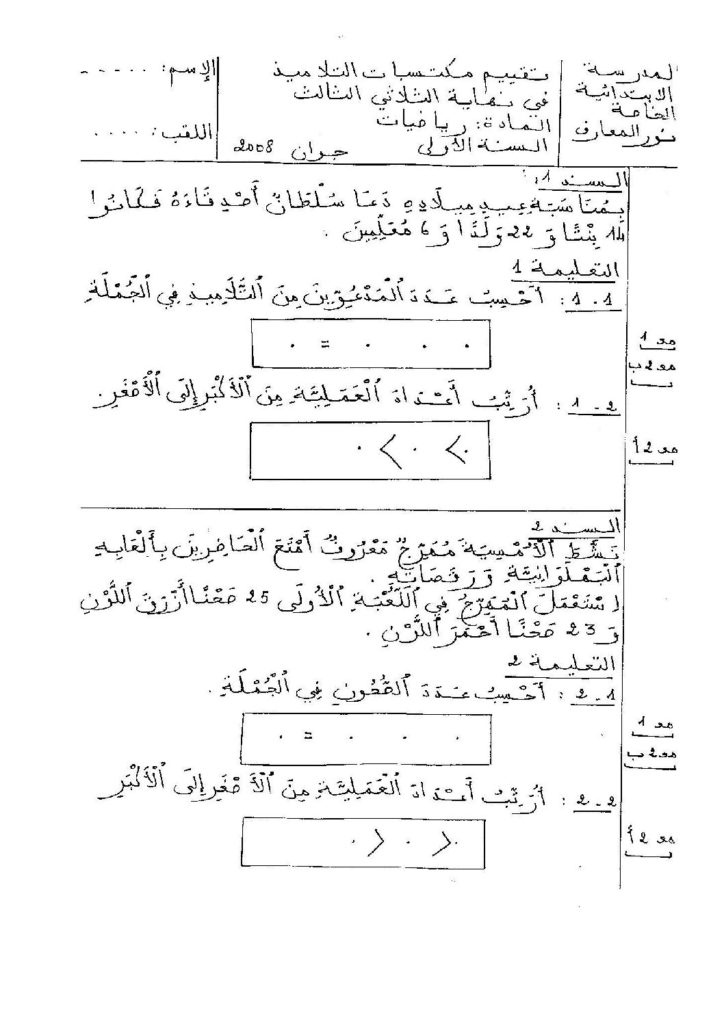 المدرسة
الابتدائية
الخاصة
نور المعارف
تقييم مكتسبات التلاميذ
في نهاية الثلاثي الثالث
المادة: رياضيات
السنة الأولى جوان 2008
الإسم: .....
اللقب: ....
السند 1:
بِمُنَاسَبَةِ عِيدِ مِيلَادِهِ دَعَا سُلْطَانُ أَصْدِقَاءَهُ فَكَانُوا
14 بِنْتًا وَ 22 وَلَدًا وَ 6 مُعَلِّمِينَ .
التعليمة 1
1-1 : أَحْسِبُ عَدَدَ الْمَدْعُوِّينَ مِنَ التَّلَامِيذِ فِي الْجُمْلَةِ
. . . = .
مع 1
مع 2 ب
1-2 : أُرَتِّبُ أَعْدَادَ الْعَمَلِيَّةِ مِنَ الْأَكْبَرِ إِلَى الْأَصْغَرِ.
. > . > .
مع 2 أ
السند 2
نَشَّطَ الْأُمْسِيَةَ مُهَرِّجٌ مَعْرُوفٌ أَمْتَعَ الْحَاضِرِينَ بِأَلْعَابِهِ
الْبَهْلَوَانِيَّةِ وَرَقَصَاتِهِ .
اسْتَعْمَلَ الْمُهَرِّجُ فِي اللُّعْبَةِ الْأُولَى 25 صَحْنًا أَزْرَقَ اللَّوْنِ
وَ 23 صَحْنًا أَحْمَرَ اللَّوْنِ .
التعليمة 2
2-1 : أَحْسِبُ عَدَدَ الصُّحُونِ فِي الْجُمْلَةِ .
. . . = .
مع 1
مع 2 ب
2-2 : أُرَتِّبُ أَعْدَادَ الْعَمَلِيَّةِ مِنَ الْأَصْغَرِ إِلَى الْأَكْبَرِ
. < . < .
مع 2 أ